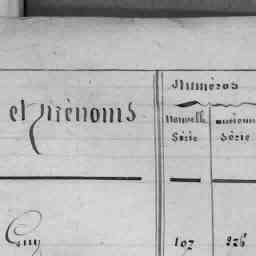 Numéros
et Prénoms
Nouvelle
Série
ancienne
Série
Guy
197
226